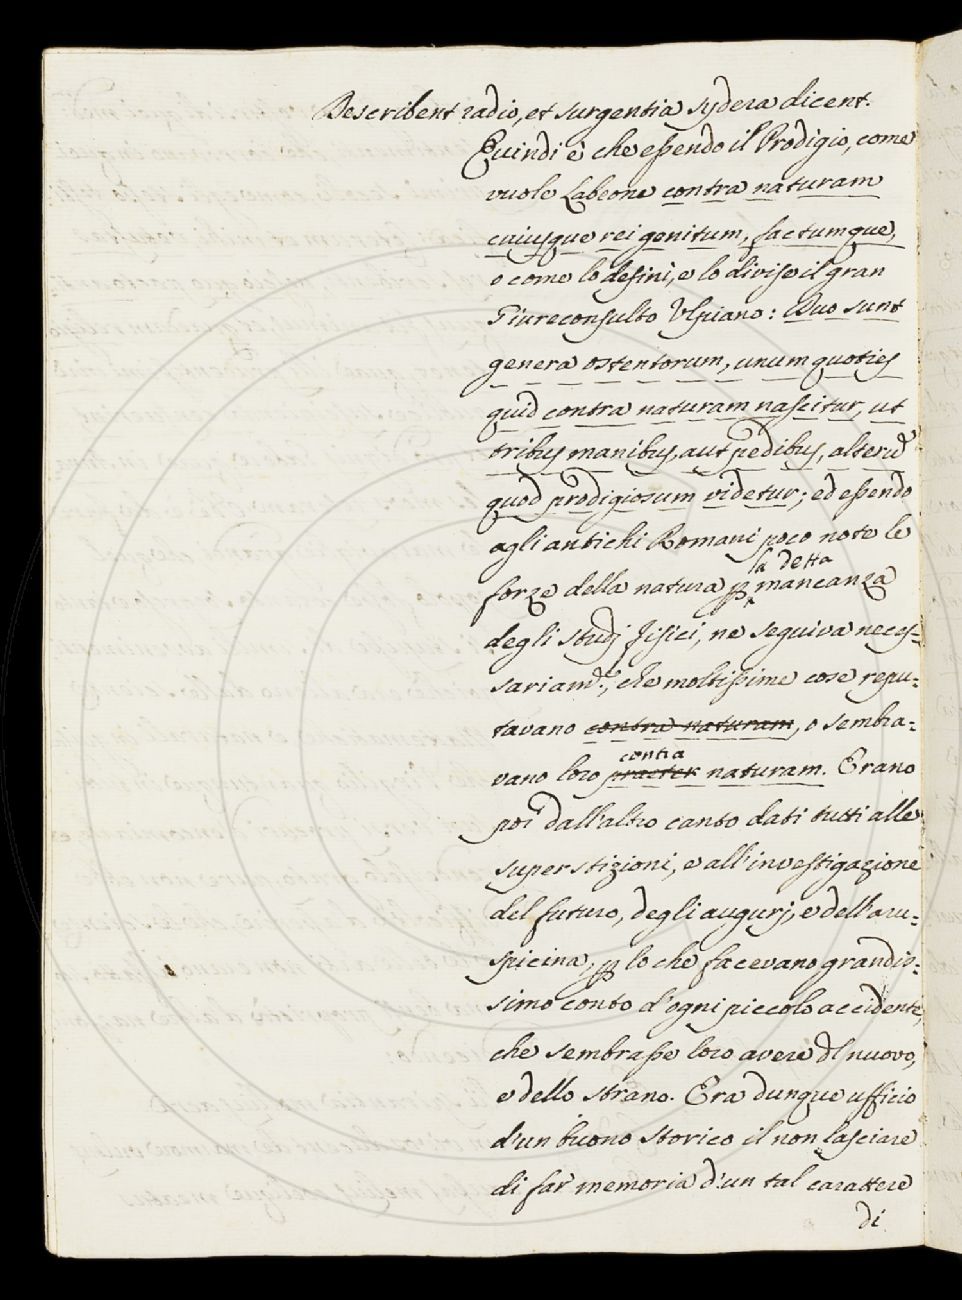 Describent radio, et surgentia sydera dicent.
Quindi è che essendo il Prodigio, come
vuole Labeone contra naturam
cuiusque rei genitum, factumque,
o come lo definì, e lo divise il gran
Giureconsulto Ulpiano: Duo sunt
genera ostentorum, unum quoties
quid contra naturam nascitur, ut
tribus manibus, aut pedibus, alterũ
quod prodigiosum videtur; ed essendo
agli antichi Romani poco note le
la detta
forze della natura p mancanza
degli studj fisici, ne seguiva neces=
sariam.e, che moltissime cose repu=
tavano contra naturam, o sembra=
contra
vano loro praeter naturam. Erano
poi dall'altro canto dati tutti alle
superstizioni, e all'investigazione
del futuro, degli augurj, e dell'aru=
spicina, p lo che facevano grandis=
simo conto d'ogni piccolo accidente,
che sembrasse loro avere del nuovo,
e dello strano. Era dunque ufficio
d'un buono storico il non lasciare
di far memoria d'un tal carattere
di